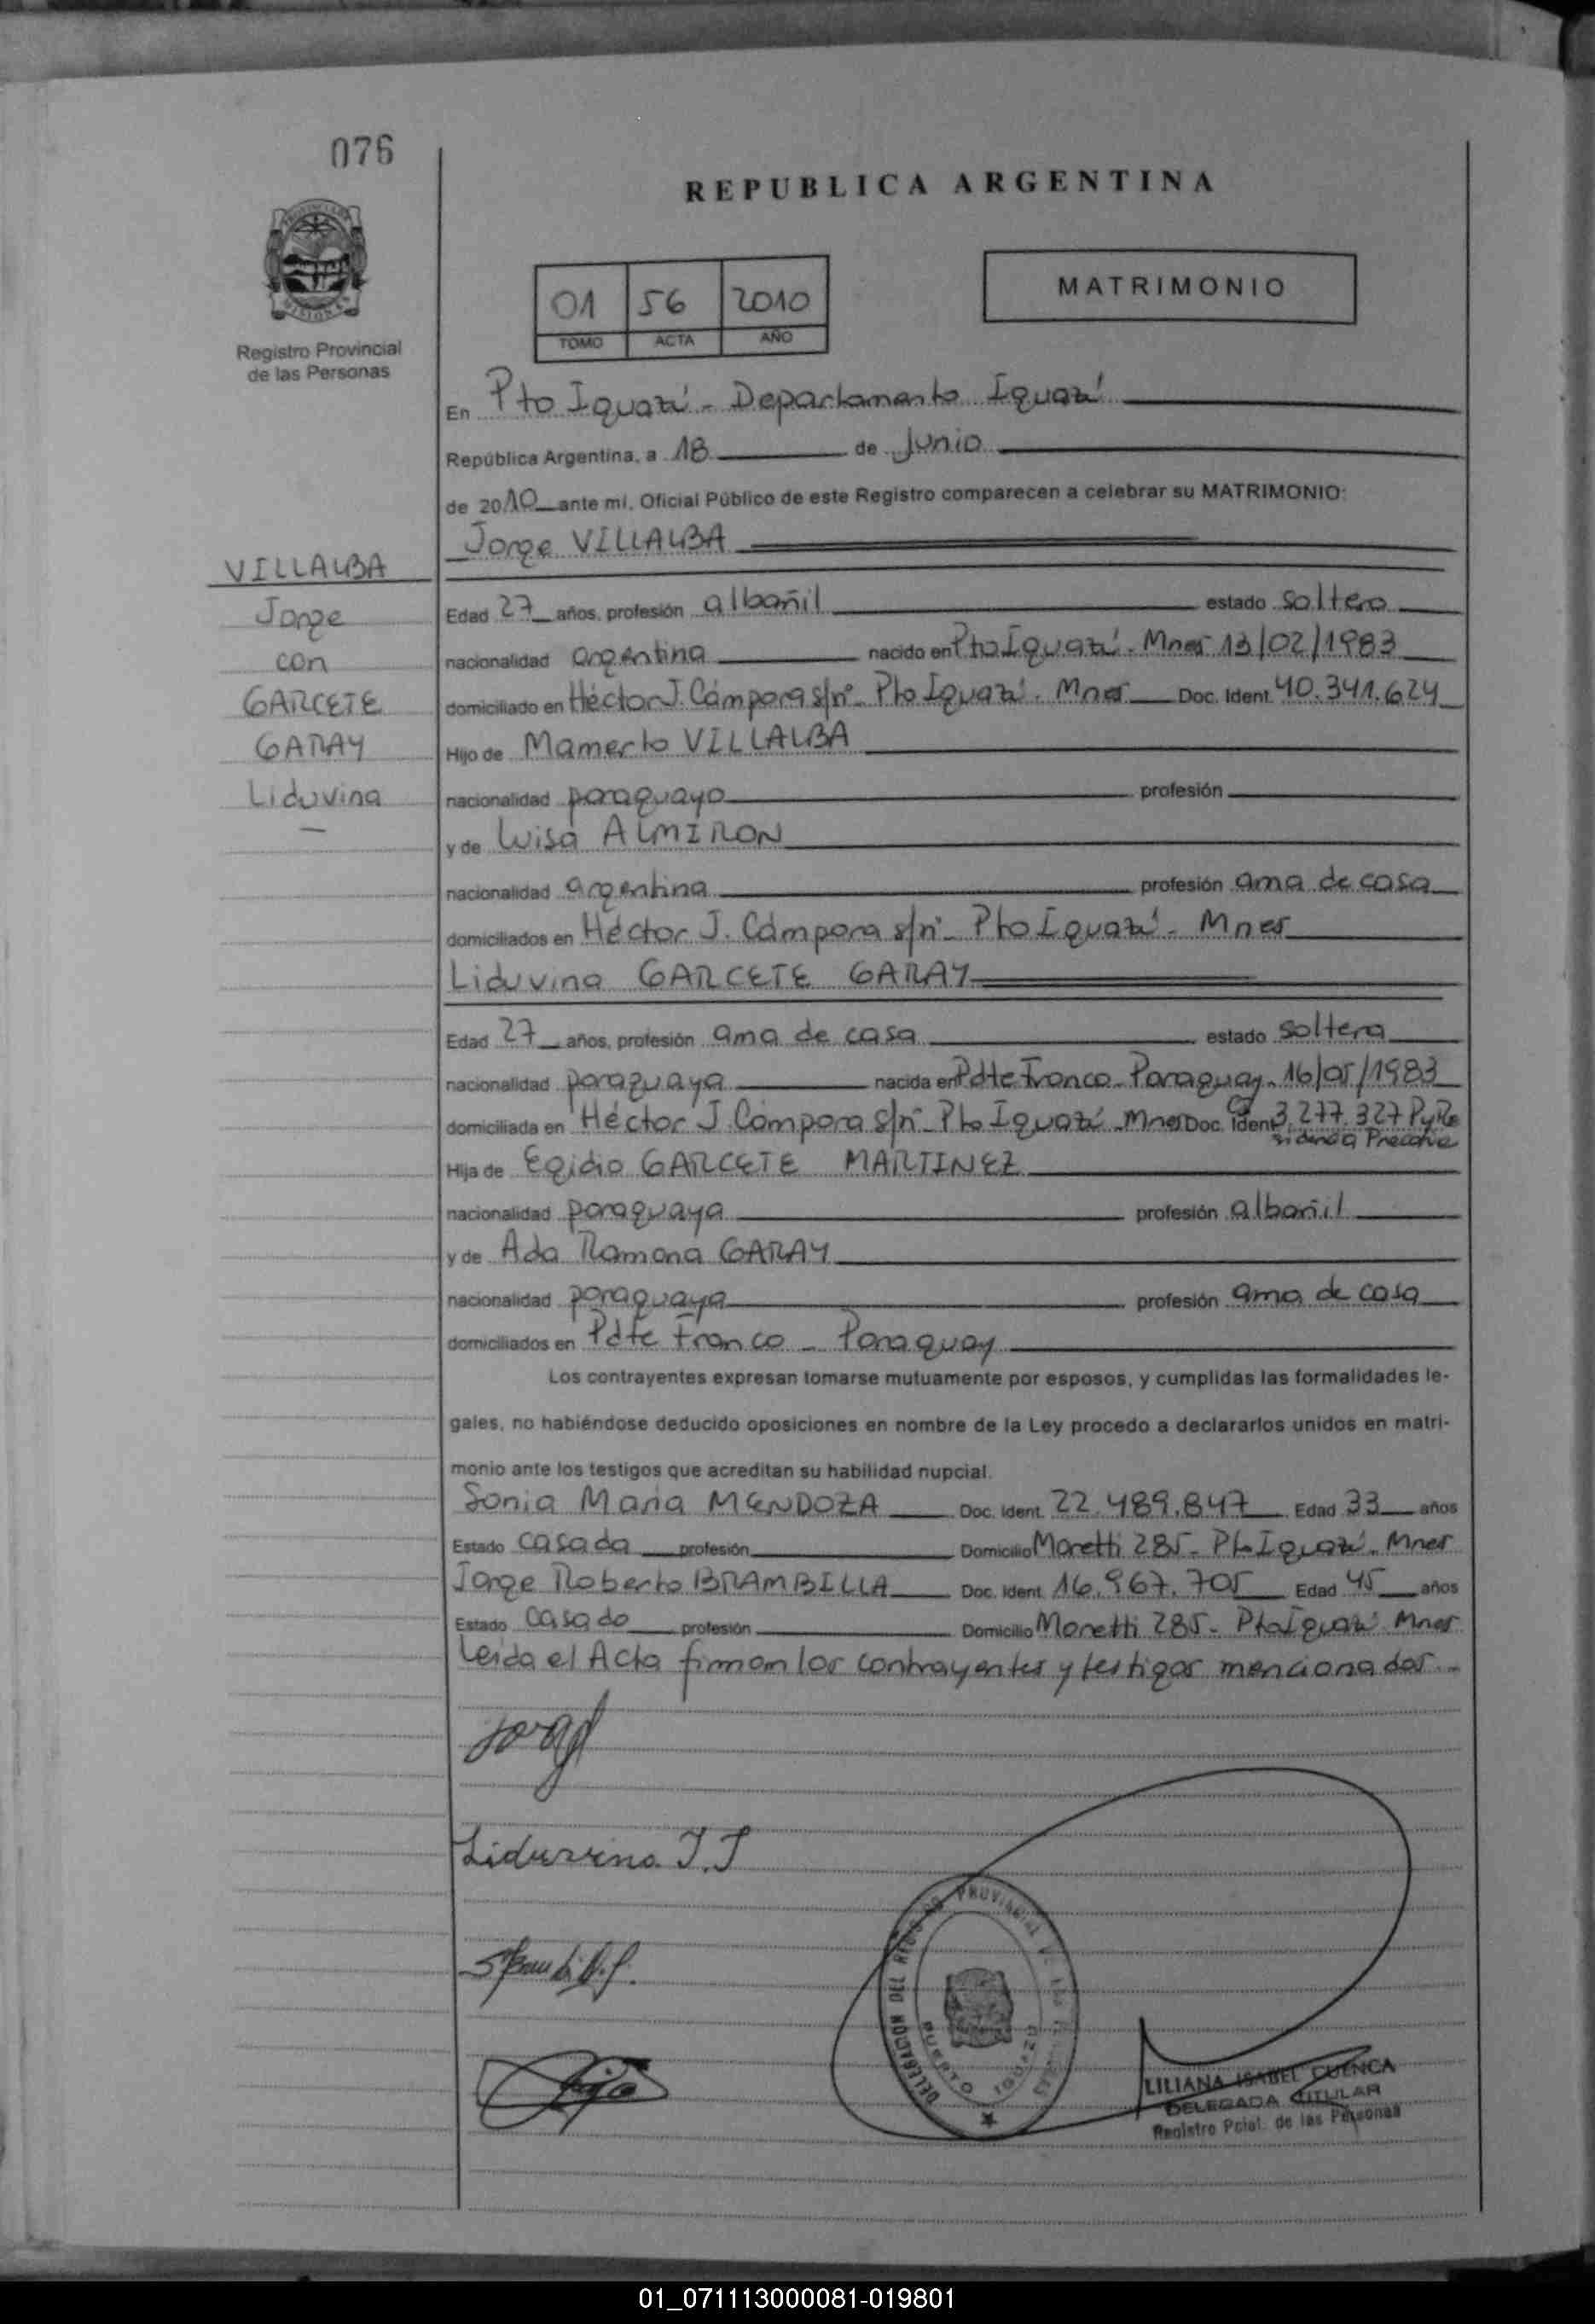 076
REPUBLICA ARGENTINA
MATRIMONIO
01 56 2010
TOMO ACTA AÑO
Registro Provincial
de las Personas
En Pto Iguazú - Departamento Iguazú
República Argentina, a 18 de Junio
de 2010 ante mi, Oficial Público de este Registro comparecen a celebrar su MATRIMONIO:
Jorge VILLALBA
VILLALBA
Jorge
con
GARCETE
GARAY
Liduvina
Edad 27 años, profesión albañil estado soltero
nacionalidad argentina nacido en Pto Iguazú - Mnes 13/02/1983
domiciliado en Héctor J. Cámpora s/nº - Pto Iguazú - Mnes Doc. Ident. 40.341.624
Hijo de Mamerto VILLALBA
nacionalidad paraguayo profesión
y de Luisa ALMIRON
nacionalidad argentina profesión ama de casa
domiciliados en Héctor J. Cámpora s/nº - Pto Iguazú - Mnes
Liduvina GARCETE GARAY
Edad 27 años, profesión ama de casa estado soltera
nacionalidad paraguaya nacida en Pdte Franco - Paraguay - 16/05/1983
domiciliada en Héctor J. Cámpora s/nº - Pto Iguazú - Mnes Doc. Ident. CI 3.277.327 Py Re
sidencia Precaria
Hija de Egidio GARCETE MARTINEZ
nacionalidad paraguaya profesión albañil
y de Ada Ramona GARAY
nacionalidad paraguaya profesión ama de casa
domiciliados en Pdte Franco - Paraguay
Los contrayentes expresan tomarse mutuamente por esposos, y cumplidas las formalidades le-
gales, no habiéndose deducido oposiciones en nombre de la Ley procedo a declararlos unidos en matri-
monio ante los testigos que acreditan su habilidad nupcial.
Sonia Maria MENDOZA Doc. Ident. 22.489.847 Edad 33 años
Estado casada profesión Domicilio Moretti 285 - Pto Iguazú - Mnes
Jorge Roberto BRAMBILLA Doc. Ident. 16.967.705 Edad 45 años
Estado casado profesión Domicilio Moretti 285 - Pto Iguazú - Mnes
Leída el Acta firman los contrayentes y testigos mencionados.-
Jorge
Liduvina J.J
DELEGACIÓN DEL REGISTRO PROVINCIAL DE LAS PERSONAS
PUERTO IGUAZU
LILIANA ISABEL CUENCA
DELEGADA TITULAR
Registro Pcial. de las Personas
01_071113000081-019801